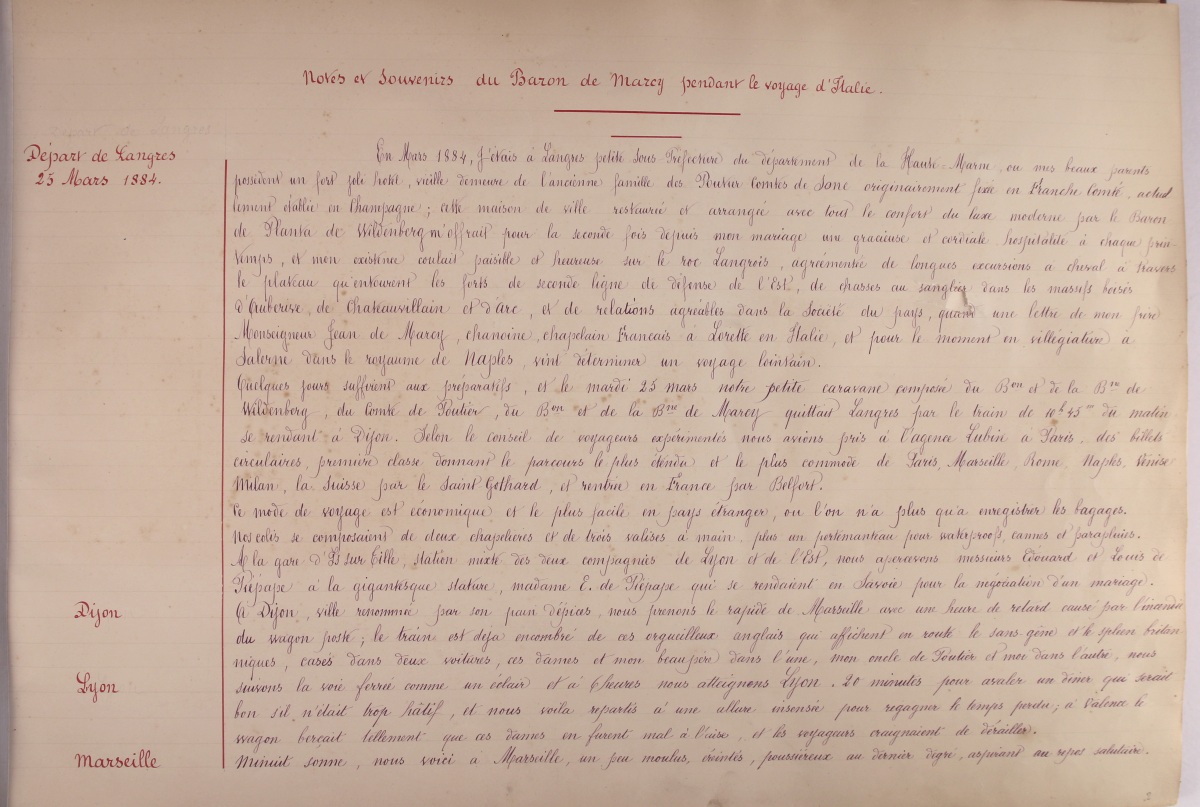 Notes et Souvenirs du Baron de Marcy pendant le voyage d'Italie.
Départ de Langres
25 Mars 1884.
En Mars 1884, J'étais à Langres petite Sous Préfecture du département de la Haute-Marne, ou mes beaux parents
possèdent un fort joli hôtel, vieille demeure de l'ancienne famille des Poutier Comtes de Sone originairement fixée en Franche Comté, actuel
lement établie en Champagne ; cette maison de ville restaurée et arrangée avec tout le confort du luxe moderne par le Baron
de Planta de Wildenberg m'offrait pour la seconde fois depuis mon mariage une gracieuse et cordiale hospitalité à chaque prin-
temps, et mon existence coulait paisible et heureuse sur le roc Langrois, agrémentée de longues excursions à cheval à travers
le plateau qu'entourent les forts de seconde ligne de défense de l'Est, de chasses au sanglier dans les massifs boisés
d'Auberive, de Chateauvillain et d'Arc, et de relations agréables dans la Société du pays, quand une lettre de mon frère
Monseigneur Jean de Marcy, chanoine, chapelain Francais à Lorette en Italie, et pour le moment en villégiature à
Salerne dans le royaume de Naples, vint déterminer un voyage lointain.
Quelques jours suffirent aux préparatifs, et le mardi 25 mars notre petite caravane composée du Bon et de la Bnne de
Wildenberg, du Comte de Poutier, du Bon et de la Bnne de Marcy quittait Langres par le train de 10h 45m du matin
se rendant à Dijon. Selon le conseil de voyageurs expérimentés nous avions pris à l'agence Lubin à Paris, des billets
circulaires, première classe donnant le parcours le plus étendu et le plus commode de Paris, Marseille, Rome, Naples, Venise
Milan, la Suisse par le Saint Gothard, et rentrée en France par Belfort.
Ce mode de voyage est économique et le plus facile en pays étranger, ou l'on n'a plus qu'a enregistrer les bagages.
Nos colis se composaient de deux chapelières et de trois valises à main, plus un portemanteau pour waterproofs, cannes et parapluies.
A la gare d'Is sur Tille, station mixte des deux compagnies de Lyon et de l'Est, nous apercevons messieurs Edouard et Louis de
Piépape à la gigantesque stature, madame E. de Piépape qui se rendaient en Savoie pour la négociation d'un mariage.
Dijon
A Dijon, ville renommée par son pain d'épices, nous prenons le rapide de Marseille avec une heure de retard causé par l'incendie
du wagon poste ; le train est déja encombré de ces orgueilleux anglais qui affichent en route le sans-gêne et le spleen britan
niques, casés dans deux voitures, ces dames et mon beaupère dans l'une, mon oncle de Poutier et moi dans l'autre, nous
Lyon
suivons la voie ferrée comme un éclair et à 6 heures nous atteignons Lyon. 20 minutes pour avaler un dîner qui serait
bon s'il n'était trop hâtif, et nous voila repartis à une allure insensée pour regagner le temps perdu ; à Valence le
wagon berçait tellement que ces dames en furent mal à l'aise, et les voyageurs craignaient de dérailler.
Marseille
Minuit sonne, nous voici à Marseille, un peu moulus, éreintés, poussiéreux au dernier dégré, aspirant au repos salutaire.